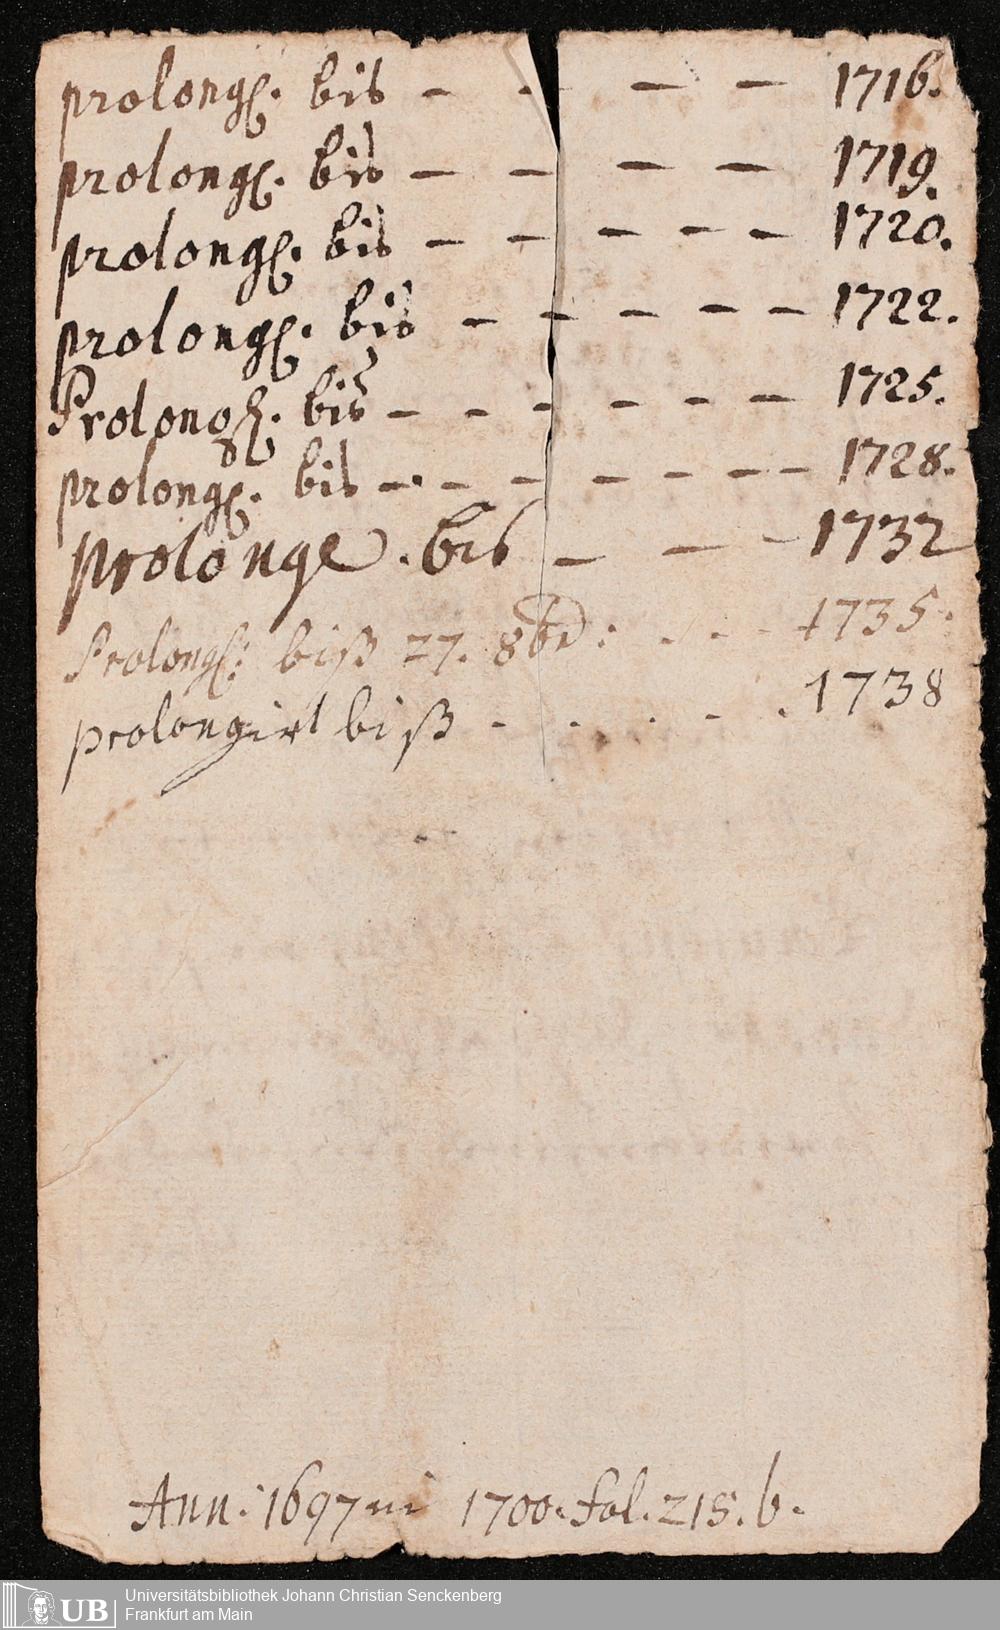 prolong. bis - - - - 1716.
prolong. bis - - - - 1719.
prolong. bis - - - - - 1720.
prolong. bis - - - - - 1722.
Prolong. bis - - - - - - 1725.
prolong. bis - - - - - - - 1728.
prolong . bis - - - 1732
Prolong: biß 27. 8br: - - - 1735.
prolongirt biß - - - - - 1738
Ann. 1697 in 1700. fol. 215. b.
Universitätsbibliothek Johann Christian Senckenberg
Frankfurt am Main
UB